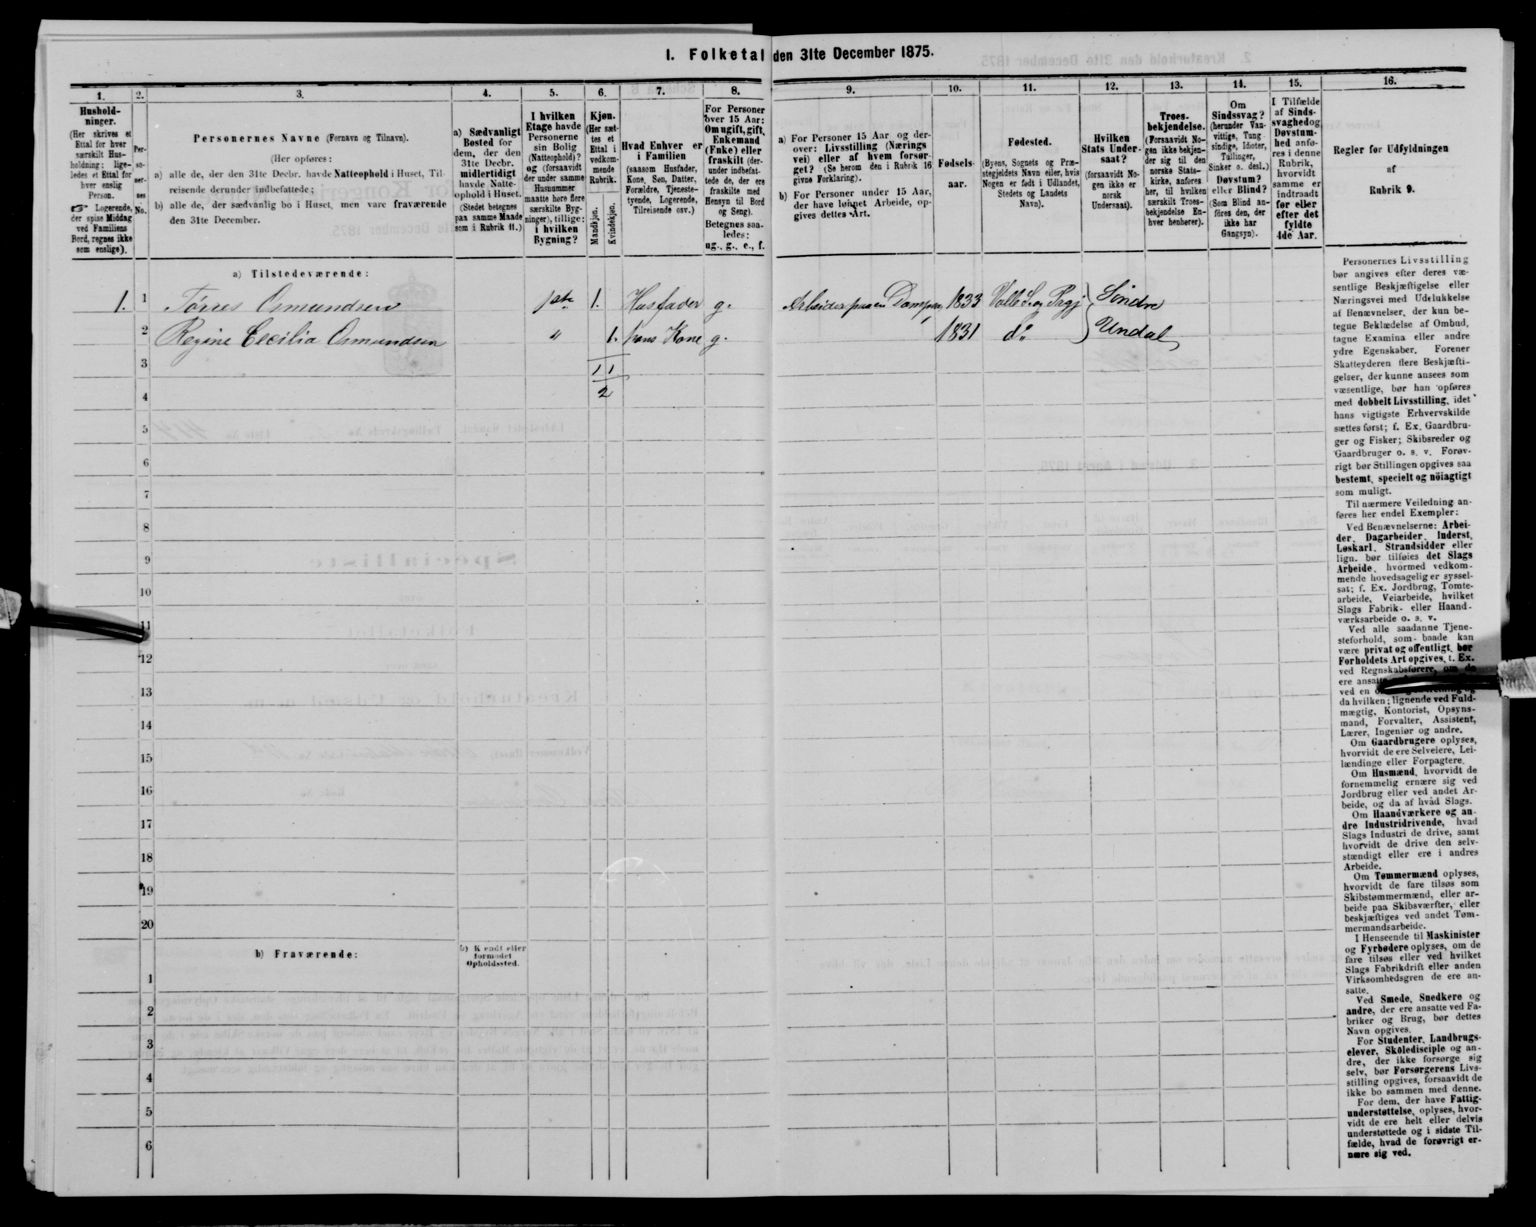 I. Folketal den 31te December 1875.
1. 2. 3. 4. 5. 6. 7. 8. 9. 10. 11. 12. 13. 14. 15. 16.
Hushold-
ninger.
(Her skrives et
Ettal for hver
særskilt Hus-
holdning; lige-
ledes et Ettal for
hver enslig
Person.
☞ Logerende,
der spise Middag
ved Familiens
Bord, regnes ikke
som enslige).
Per-
so-
ner-
nes
No.
Personernes Navne (Fornavn og Tilnavn).
(Her opføres:
a) alle de, der den 31te Decbr. havde Natteophold i Huset, Til-
reisende derunder indbefattede;
b) alle de, der sædvanlig bo i Huset, men vare fraværende
den 31te December.
a) Sædvanligt
Bosted for
dem, der den
31te Decbr.
midlertidigt
havde Natte-
ophold i Huset.
(Stedet betegnes
paa samme Maade
som i Rubrik 11.)
I hvilken
Etage havde
Personerne
sin Bolig
(Natteophold)?
og (forsaavidt
der under samme
Husnummer
maatte høre flere
særskilte Byg-
ninger), tillige:
i hvilken
Bygning?
Kjøn.
(Her sæt-
tes et
Ettal i
vedkom-
mende
Rubrik.
Mandkjøn.
Kvindekjøn.
Hvad Enhver er
i Familien
(saasom Husfader,
Kone, Søn, Datter,
Forældre, Tjeneste-
tyende, Logerende,
Tilreisende osv.)
For Personer
over 15 Aar:
Om ugift, gift,
Enkemand
(Enke) eller
fraskilt (der-
under indbefat-
tede de, der ere
fraskilte med
Hensyn til Bord
og Seng).
Betegnes saa-
ledes:
ug., g., e., f.
a) For Personer 15 Aar og der-
over: Livsstilling (Nærings
vei) eller af hvem forsør-
get? (Se herom den i Rubrik 16
givne Forklaring).
b) For Personer under 15 Aar,
der have lønnet Arbeide, op-
gives dettes Art.
Fødsels-
aar.
Fødested.
(Byens, Sognets og Præ-
stegjeldets Navn eller, hvis
Nogen er født i Udlandet,
Stedets og Landets
Navn).
Hvilken
Stats Under-
saat?
(forsaavidt No-
gen ikke er
norsk
Undersaat).
Troes-
bekjendelse.
(Forsaavidt No-
gen ikke bekjen-
der sig til den
norske Stats-
kirke, anføres
her, til hvilken
særskilt Troes-
bekjendelse En-
hver henhører).
Om
Sindssvag?
(herunder Van-
vittige, Tung
sindige, Idioter,
Tullinger,
Sinker o. desl.)
Døvstum?
eller Blind?
(Som Blind an-
føres den, der
ikke har
Gangsyn).
I Tilfælde
af Sinds-
svaghed og
Døvstum-
hed anfø-
res i denne
Rubrik,
hvorvidt
samme er
indtraadt
før eller
efter det
fyldte
4de Aar.
Regler før Udfyldningen
af
Rubrik 9.
a) Tilstedeværende:
1. 1 Tørres Osmundsen 1ste 1. Husfader g. 1833
2 Regine Cecilia Osmundsen " 1. hans Kone g. 1831 do Undal
3 1 1
4 2
5
6
7
8
9
10
11
12
13
14
15
16
17
18
19
20
b) Fraværende:
b) Kendt eller
formodet
Opholdssted.
1
2
3
4
5
6
Personernes Livsstilling
bør angives efter deres væ-
sentlige Beskjæftigelse eller
Næringsvei med Udelukkelse
af Benævnelser, der kun be-
tegne Beklædelse af Ombud,
tagne Examina eller andre
ydre Egenskaber. Forener
Skatteyderen flere Beskjæfti-
gelser, der kunne ansees som
væsentlige, bør han opføres
med dobbelt Livsstilling, idet
hans vigtigste Erhvervskilde
sættes først; f. Ex. Gaardbru-
ger og Fisker; Skibsreder og
Gaardbruger o. s. v. Forøv-
rigt bør Stillingen opgives saa
bestemt, specielt og nöiagtigt
som muligt.
Til nærmere Veiledning an-
føres her endel Exempler:
Ved Benævnelserne: Arbei-
der, Dagarbeider, Inderst,
Løskarl, Strandsidder eller
lign. bør tilføies det Slags
Arbeide, hvormed vedkom-
mende hovedsagelig er syssel-
sat; f. Ex. Jordbrug, Tomte-
arbeide, Veiarbeide, hvilket
Slags Fabrik- eller Haand-
værksarbeide o. s. v.
Ved alle saadanne Tjene-
steforhold, som baade kan
være privat og offentligt, bør
Forholdets Art opgives, t. Ex.
ved Regnskabsførere, om de
ere
ved en
da hvilken; lignende ved Fuld-
mægtig, Kontorist, Opsyns-
mand, Forvalter, Assistent,
Lærer, Ingeniør og andre.
Om Gaardbrugere oplyses,
hvorvidt de ere Selveiere, Lei-
lændinge eller Forpagtere.
Om Husmænd, hvorvidt de
fornemmelig ernære sig ved
Jordbrug eller ved andet Ar-
beide, og da af hvad Slags.
Om Haandværkere og an-
dre Industridrivende, hvad
Slags Industri de drive, samt
hvorvidt de drive den selv-
stændigt eller ere i andres
Arbeide.
Om Tømmermænd oplyses,
hvorvidt de fare tilsøs som
Skibstømmermænd, eller ar-
beide paa Skibsværfter, eller
beskjæftiges ved andet Tøm-
mermandsarbeide.
I Henseende til Maskinister
og Fyrbødere oplyses, om de
fare tilsøs eller ved hvilket
Slags Fabrikdrift eller anden
Virksomhedsgren de ere an-
satte.
Ved Smede, Snedkere og
andre, der ere ansatte ved Fa-
briker og Brug, bør dettes
Navn opgives.
For Studenter, Landbrugs-
elever, Skoledisciple og an-
dre, der ikke forsørge sig
selv, bør Forsørgerens Livs-
stilling opgives, forsaavidt de
ikke bo sammen med denne.
For dem, der have Fattig-
understøttelse, oplyses, hvor-
vidt de ere helt eller delvis
understøttede og i sidste Til-
fælde, hvad de forøvrigt er-
nære sig ved.